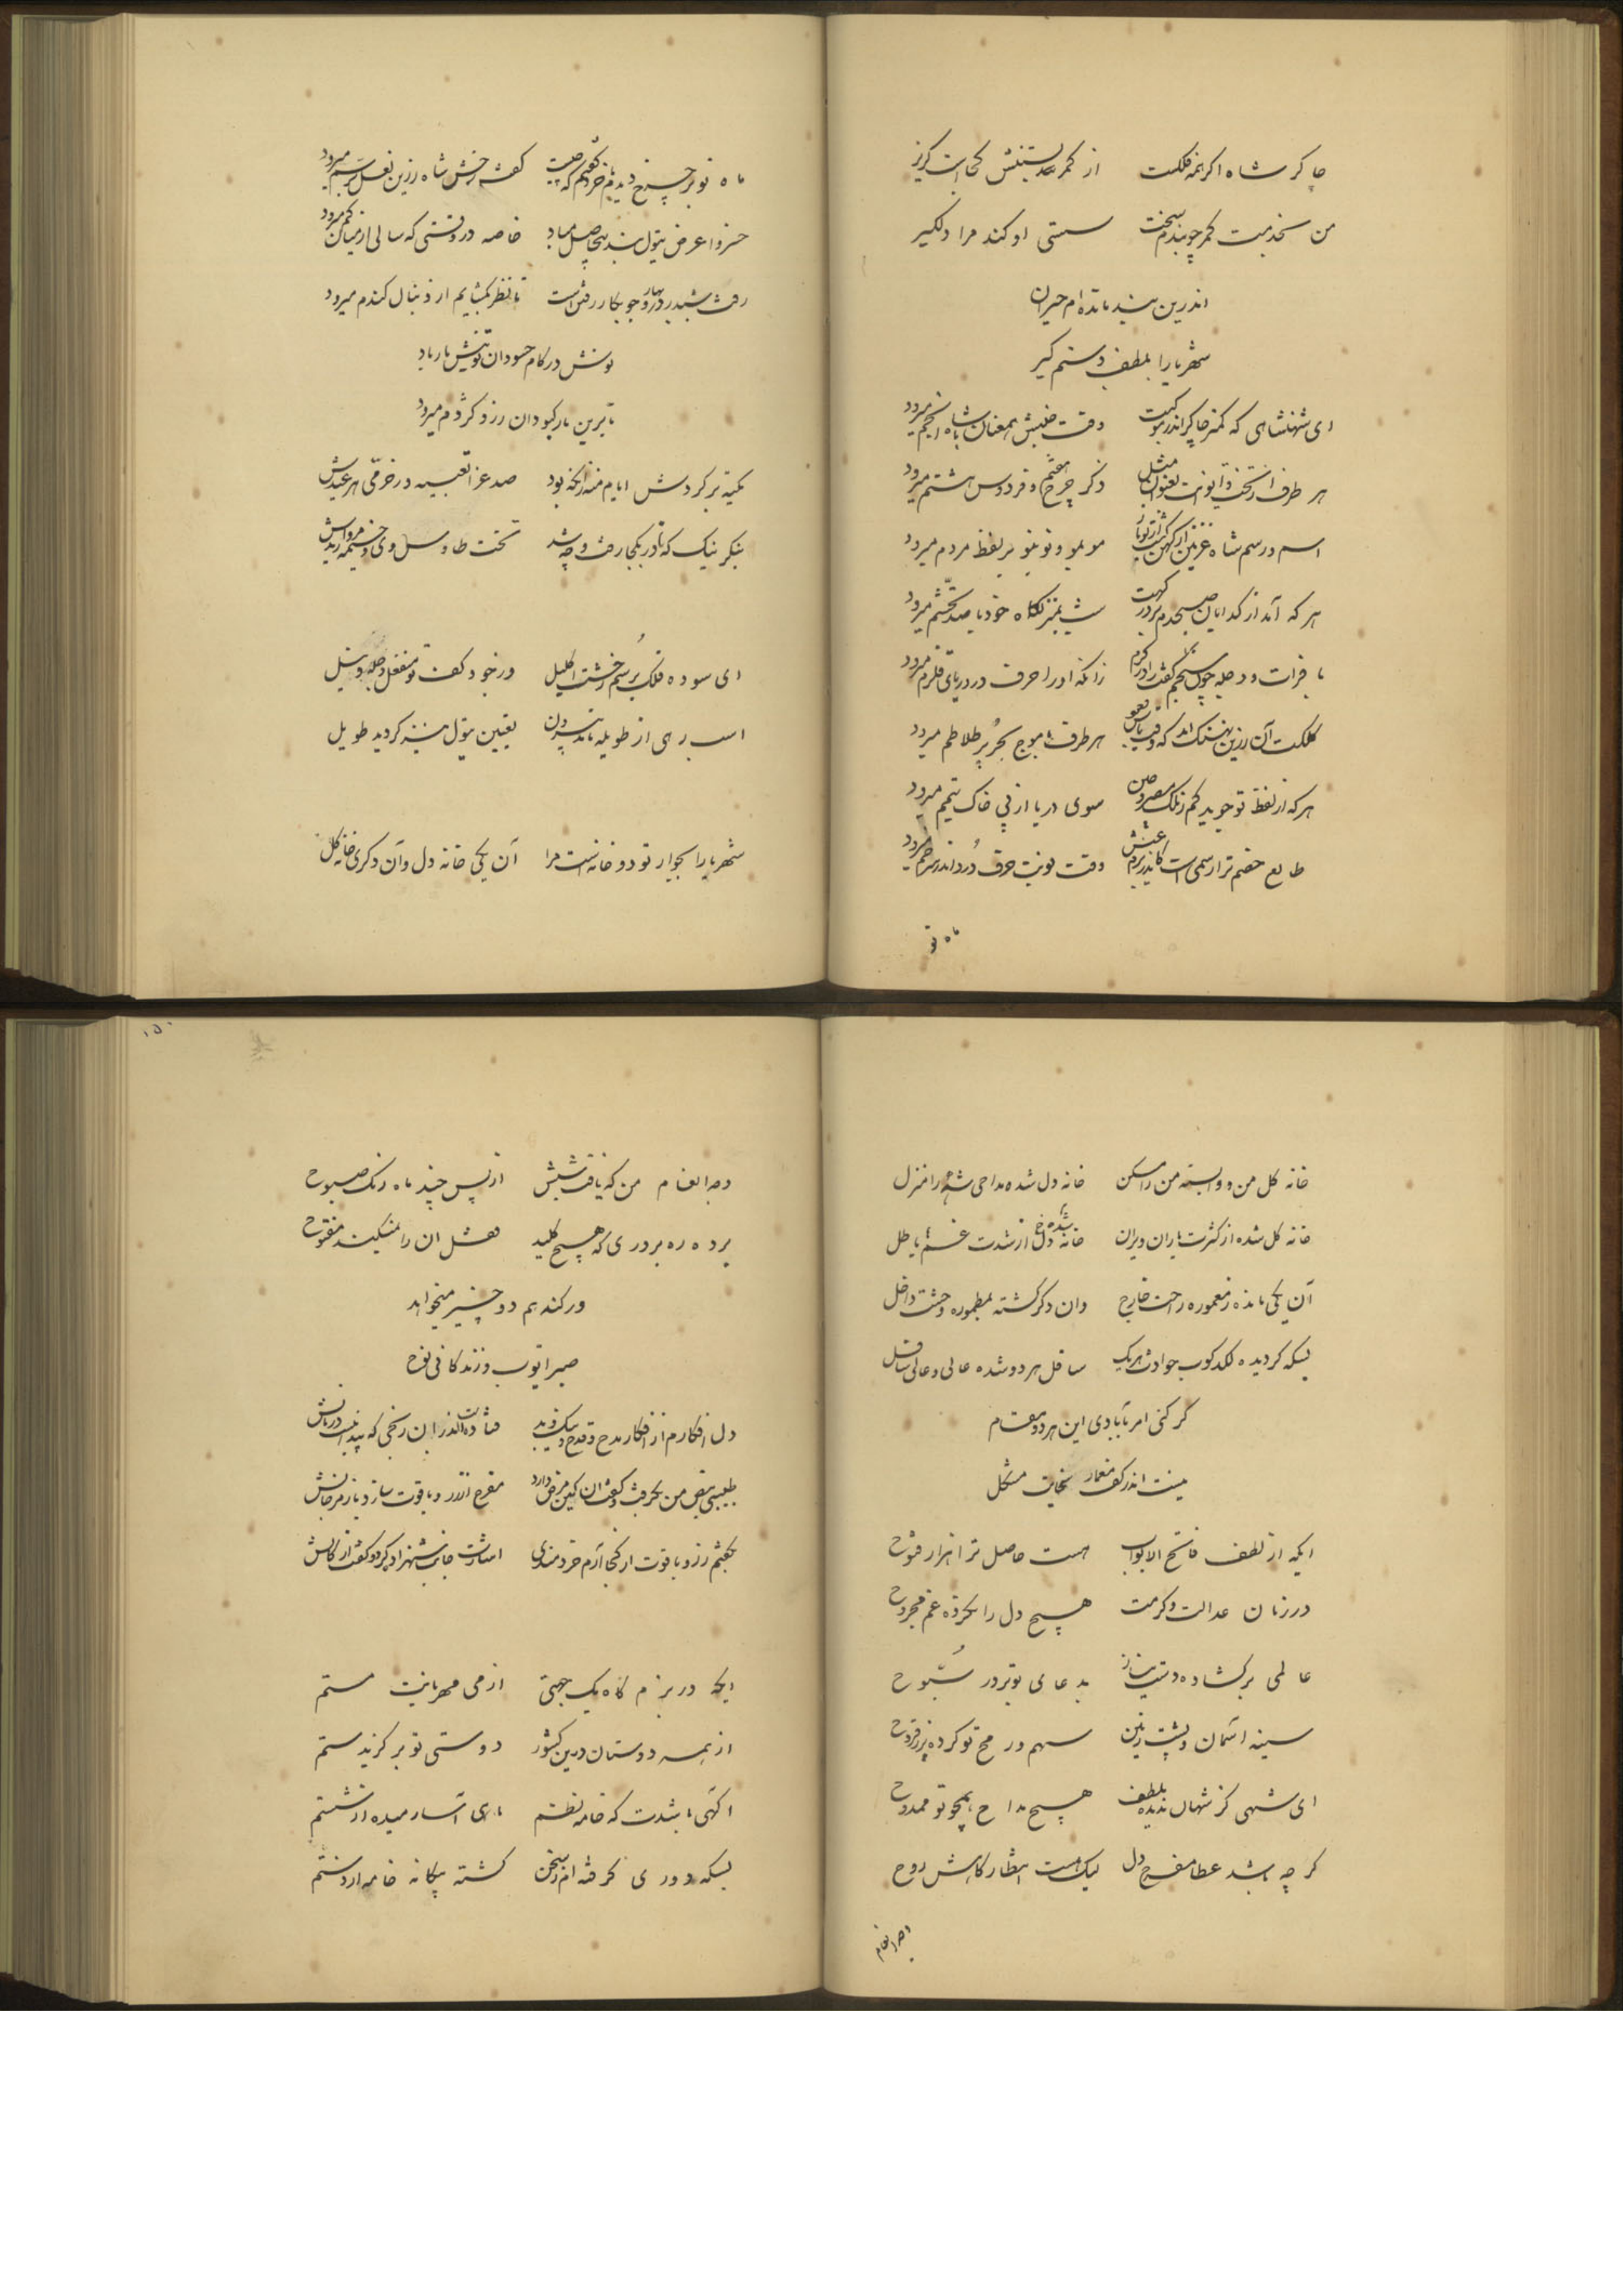 چاکر شاه اگر نه فلکست از کمر بستنش کجاست گریز
من بخدمت کمر چو بندم سخت سستی او کند مرا دلگیر
اندرین بند مانده ام حیران
شهریارا بلطف دستم گیر
ای شهنشاهی که کمتر چاکر اندر موکبت وقت جنبش همعنان با شاه انجم میرود
هر طرف از تخت و ایوانت بعنوان مثل ذکر چرخ هفتم و فردوس هشتم میرود
اسم و رسم شاه غزنین از کهن موبمو و نو بنو بر لفظ مردم میرود
هر که آمد از گدایان صبحدم بر درگهت شب بمنزلگاه خود با صد تحشم میرود
با فرات و دجله چون سنجم کفت را در کرم زانکه او را حرف در دریای قلزم میرود
کلکت آن زرین نهنگ هر طرف با موج بحر پر طلاطم میرود
هر که از لفظ تو جوید کم سوی دریا از پی خاک تیمم میرود
طالع خصم ترا رسمی است کاندر بزم عیش وقت نوبت حرف درد اندر سر خم میرود
ماه نو
ماه نو بر چرخ دیدم با خرد گفتم که چیست گفت رخش شاه را زرین نعل سم میرود
خسروا عرض تیول بنده بیحاصل مباد خاصه در وقتی که سالی از میان کم میرود
رفت شبدیز و در و جو بکار رفتن است تا نظر بگشایم از دنبال گندم میرود
نوش در کام حسودان تو نیش مار باد
تا برین بار کبودان رزد کژدم میرود
تکیه بر گردش ایام منه زانکه بود صد عزا تعبیه در خرمی هر عیدش
بنگر نیک که نادر بکجا رفت و چه شد تخت طاوسی وی و خیمه مرواریدش
ای سوده فلک بر سم رخشت اکلیل در جود کفت تو منفعل دجله و نیل
اسب رهی از طویله ماندست برون تعیین تیول بنده گردید طویل
شهریارا بجوار تو دو خانه است مرا آن یکی خانه دل وآن دگری خانه گل
خانه گل من و وابسته من را مسکن خانه دل شده مداحی شه را منزل
خانه گل شده از کثرت باران ویران خانه دل شده از شدت غمها باطل
آن یکی مانده ز معموره راحت خارج وان دگر گشته بمطموره وحشت داخل
بسکه گردیده لگدکوب حوادث هریک سافل هر دو شده عالی و عالی سافل
گر کنی امر بآبادی این هر دو مقام
نیست اندر کف معمار سخایت مشکل
ایکه از لطف فاتح الابواب هست حاصل ترا هزار فتوح
در زمان عدالت و کرمت هیچ دل را نکرده غم مجروح
عالمی برگشاده دست نیاز بدعای تو بر در سبوح
سینه آسمان و پشت زمین سهم و رمح تو کرده پر ز قروح
ای شهی کز شهان ندیده بلطف هیچ مداح همچو تو ممدوح
گر چه باشد عطا مفرح دل لیک هست انتظار کاهش روح
وجه انعام
وجه انعام من که یافت شبش از پس چند ماه رنگ صبوح
برده ره بر دری که هیچ کلید قفل آن را نمیکند مفتوح
ور کند هم دو چیز میخواهد
صبر ایوب و زندگانی نوح
دل افکارم از افکار مدح و قدح و نیک و بد فتاده است اندر این رنجی که پیدا نیست درمانش
طبیبی نبض من بگرفت و گفت آن کین مرض دارد مفرح از زر و یاقوت سازد یا ز مرجانش
بگفتم زر و یاقوت از کجا آرم خردمندی اشارت جانب شهزاده کرد و گفت از کانش
ایکه در بزمگاه یک جهتی از می مهربانیت مستم
از همه دوستان درین کشور دوستی تو برگزیدستم
آگهی باشدت که خامه نظم ماهی آسا رمیده از شستم
بسکه دوری گرفته ام ز سخن گشته بیگانه خامه از دستم
۱۵۰